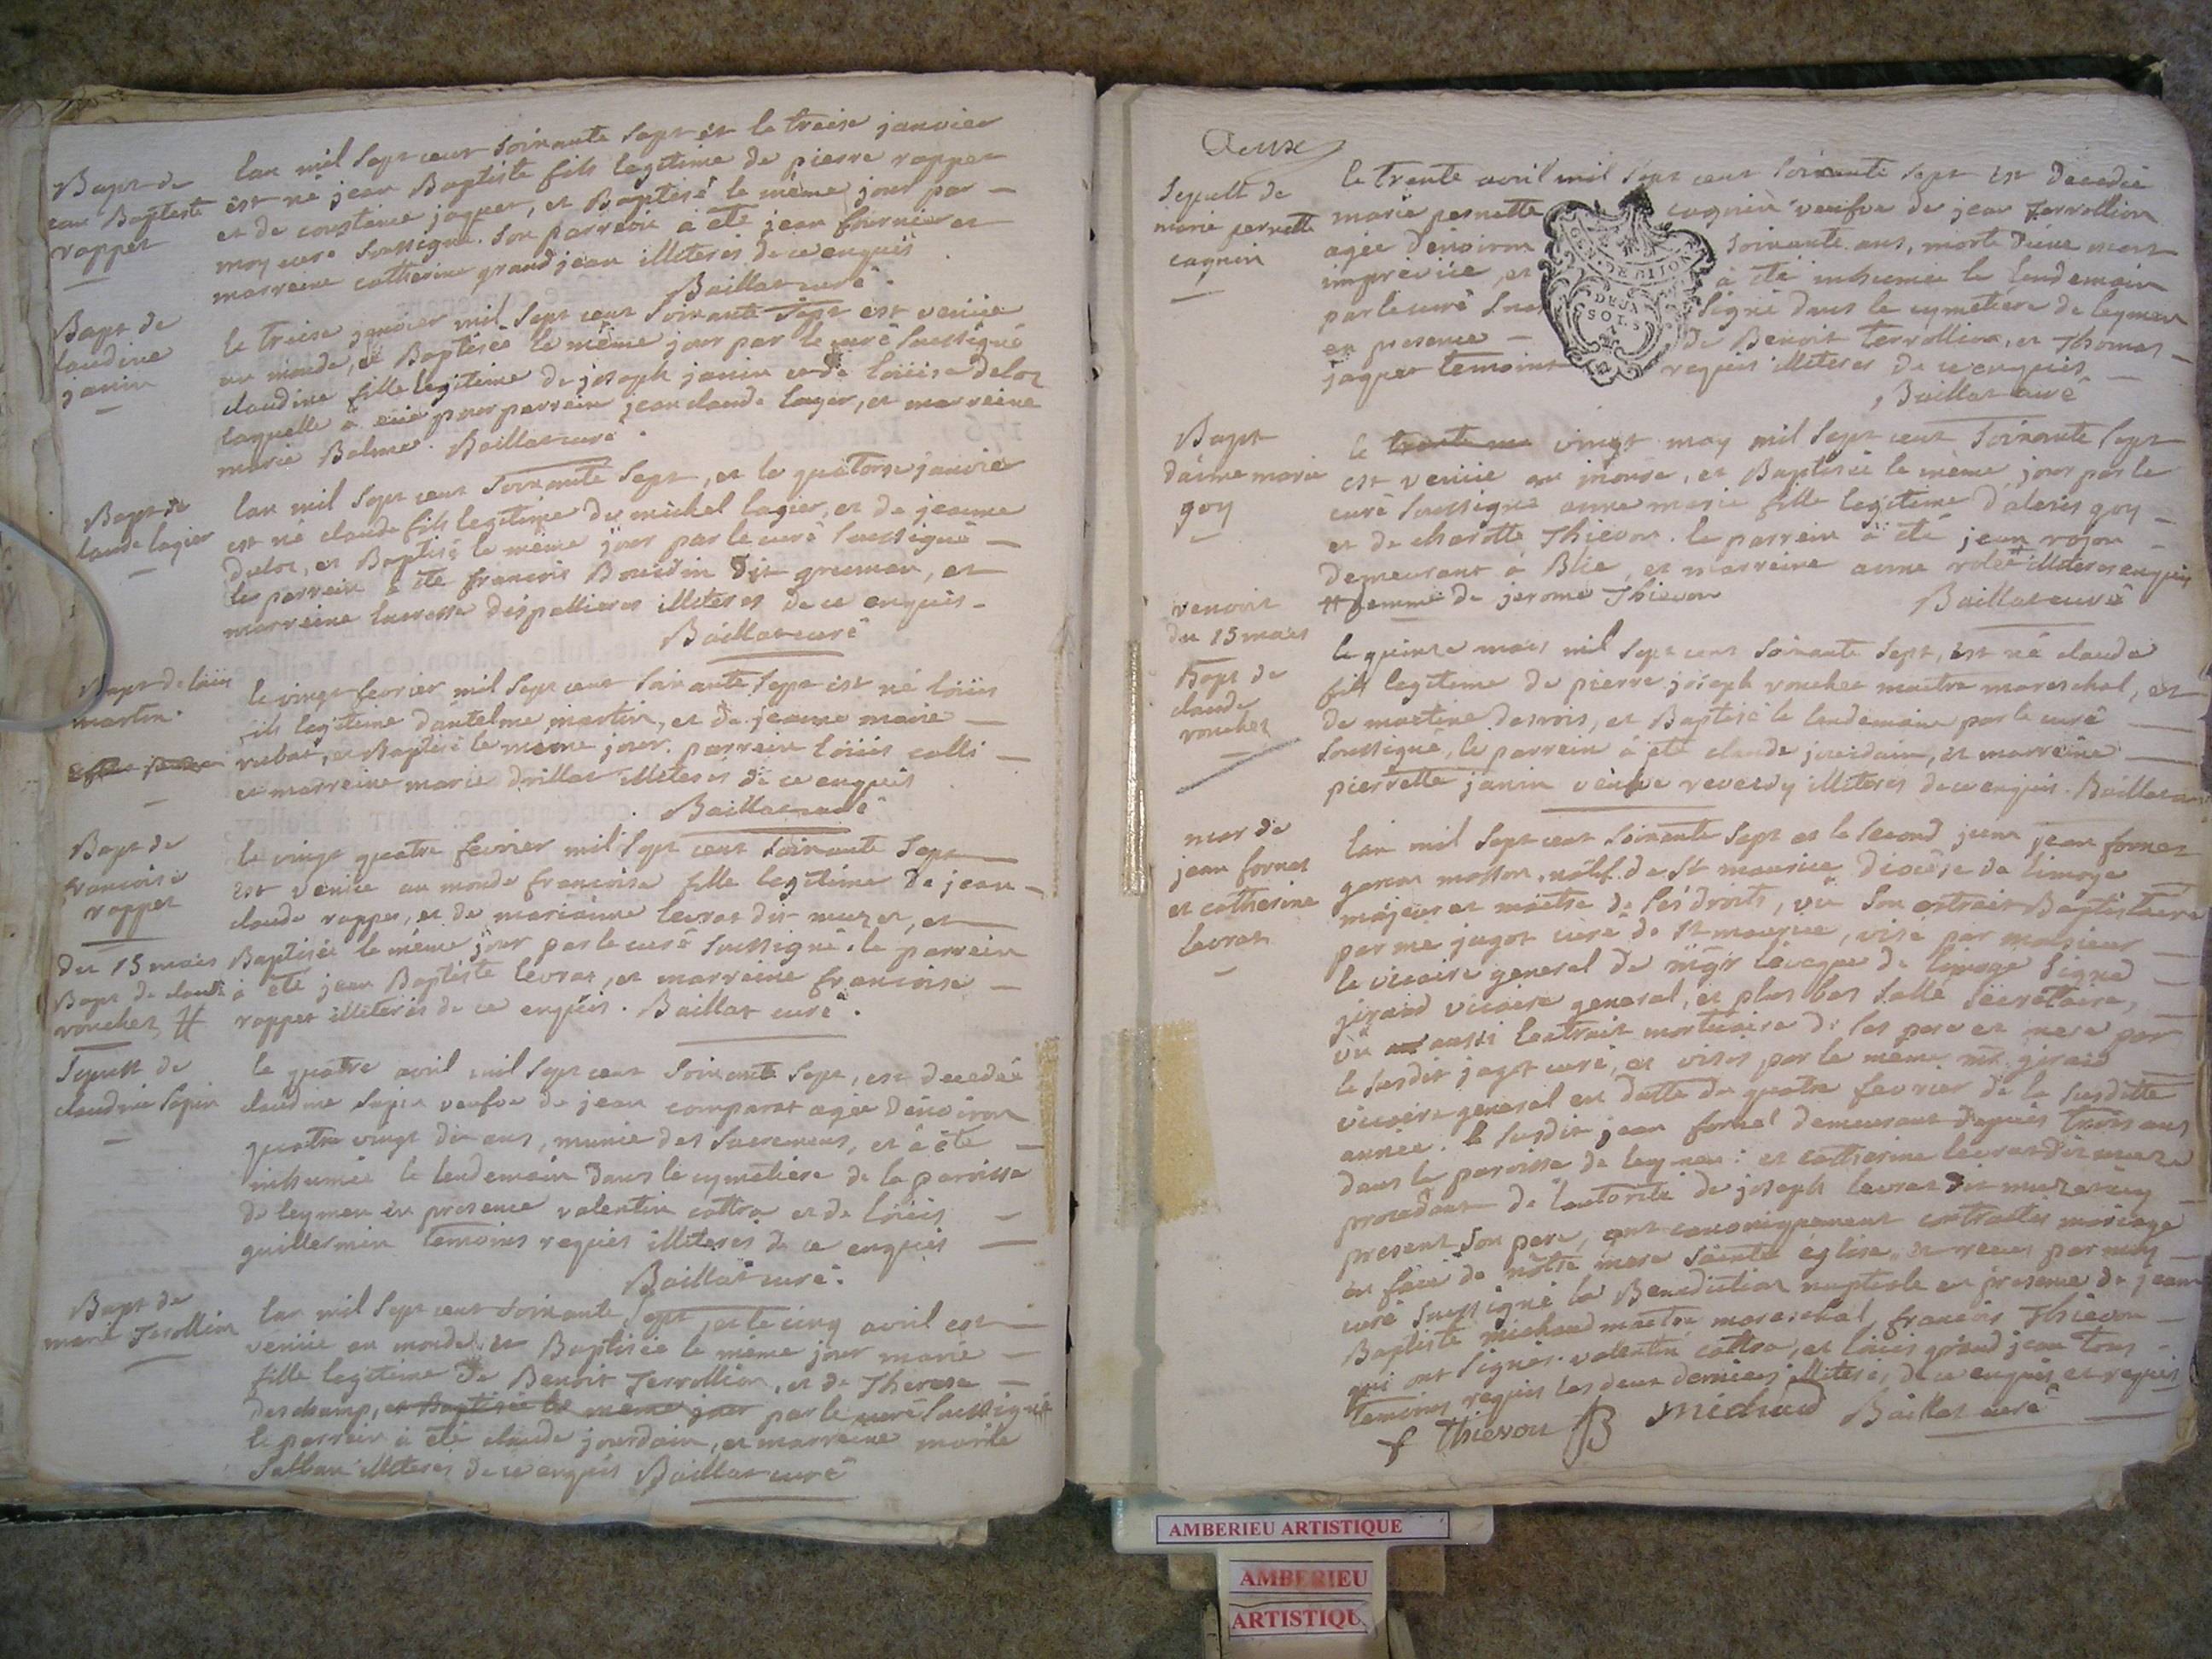 Bapt de
jean Baptiste
rappet
lan mil sept cent soixante sept et le treise janvier
est né jean Baptiste fils legitime de pierre rappet
et de constance jaquet, et Baptisé le même jour par
moy curé soussigné. son parrein à été jean fournier et
marreine catherine grand jean illiterés de ce enquis
Baillat curé.
Bapt de
claudine
janin
le treise janvier mil sept cent soixante sept est venüe
au monde, et Baptisée le même jour par le curé soussigné
claudine fille legitime de joseph janin et de loüise deloz
laquelle à eüe pour parrein jean claude lagier, et marreine
marie Balme. Baillat curé.
Bapt de
claude lagier
lan mil sept cent soixante sept, et le quatorse janvier
est né claude fils legitime de michel lagier, et de jeanne
duloz, et Baptisé le même jour par le curé soussigné
le parrein à été françois Bourdin dit greuman, et
marreine lucresse despallieres illiterés de ce enquis
Baillat curé
Bapt de loüis
martin.
le vingt fevrier mil sept cent soixante sept est né loüis
fils legitime d'antelme martin, et de jeanne marie
rubat, et Baptisé le même jour. parrein loüis colli
et marreine marie drillat illiterés de ce enquis
Baillat curé
Bapt de
françoise
rappet
le vingt quatre fevrier mil sept cent soixante sept
est venüe au monde françoise fille legitime de jean
claude rappet, et de marianne levrat dit muzet, et
Baptisée le même jour par le curé soussigné. le parrein
à été jean Baptiste levrat, et marreine françoise
rappet illiterés de ce enquis. Baillat curé.
du 15 mars
Bapt de claude
vouchez #
Sepult de
claudine Sapin
le quatre avril mil sept cent soixante sept, est decedée
claudine sapin veufve de jean comparat agée d'environ
quatre vingt dix ans, munie des sacremens, et à été
inhumée le lendemain dans le cymetière de la paroisse
de leymen en presence valentin cottra et de loüis
guillermin temoins requis illiterés de ce enquis
Baillat curé.
Bapt de
marie Terollion
lan mil sept cent soixante sept, et le cinq avril est
venüe au monde et Baptisée le même jour marie
fille legitime de Benoit Terrollion, et de Therese
deschamp, et Baptisée le meme jour par le curé soussigné
le parrein à été claude jourdain, et marreine marie
Salban illiterés de ce enquis Baillat curé
Deux
Sepult de
marie pernette
cagnin
le trente avril mil sept cent soixante sept est decedée
marie pernette cagnin veufve de jean Terrollion
agée d'environ soixante ans, morte d'une mort
imprevüe, et à été inhumée le lendemain
par le curé sous signé dans le cymetiere de leymen
en presence de Benoit terrollion, et Thomas
jaquet temoins requis illiterés de ce enquis
Baillat curé
GEN. DE DIJON
DEUX
SOLS
Bapt
d'anne marie
goy
le trente ma vingt may mil sept cent soixante sept
est venüe au monde, et Baptisée le même jour par le
curé soussigné anne marie fille legitime d'alexis goy
et de charotte Thievon. le parrein à été jean rojon
demeurant à Blie, et marreine anne rolée # illiterés enquis
# femme de jerome Thievon Baillat curé
venoit
du 15 mars
Bapt de
claude
vouchez
le quinse mars mil sept cent soixante sept, est né claude
fils legitime de pierre joseph vouchez maitre mareschal, et
de martine desvois, et Baptisé le lendemain par le curé
soussigné, le parrein à été claude jourdain, et marreine
pierrette janin veufve reverdy illiterés de ce enquis. Baillat curé
mar de
jean fornet
et catherine
levrat
lan mil sept cent soixante sept et le second juin jean fornet
garçon masson, natif de St maurice diocèse de limoge
majeur et maitre de ses droits, vû son extrait Baptistaire
par mre jagot curé de st maurice, visé par monsieur
le vicaire general de mgr l'éveque de limoge signé
giraud vicaire general, et plus bas sallé secretaire,
vû aussi lextrait mortuaire de ses pere et mere par
le susdit jagot curé, et visés par le même mr. giraud
vicaire general en datte du quatre fevrier de la susditte
année. le susdit jean fornet demeurant depuis trois ans
dans la paroisse de leymen : et catherine levrat dit muzet
procedant de l'autorité de joseph levrat dit muzet icy
present son pere, ont canoniquement contractés mariage
en face de nôtre mere sainte église, et receu par moy
curé soussigné la Benediction nuptiale en presence de jean
Baptiste michaud maitre mareschal, françois Thievon
qui ont signés. valentin cottra, et loüis grand jean tous
temoins requis les deux derniers illiterés de ce enquis et requis
f Thievon JB michaud Baillat curé
AMBERIEU ARTISTIQUE
AMBERIEU
ARTISTIQUE